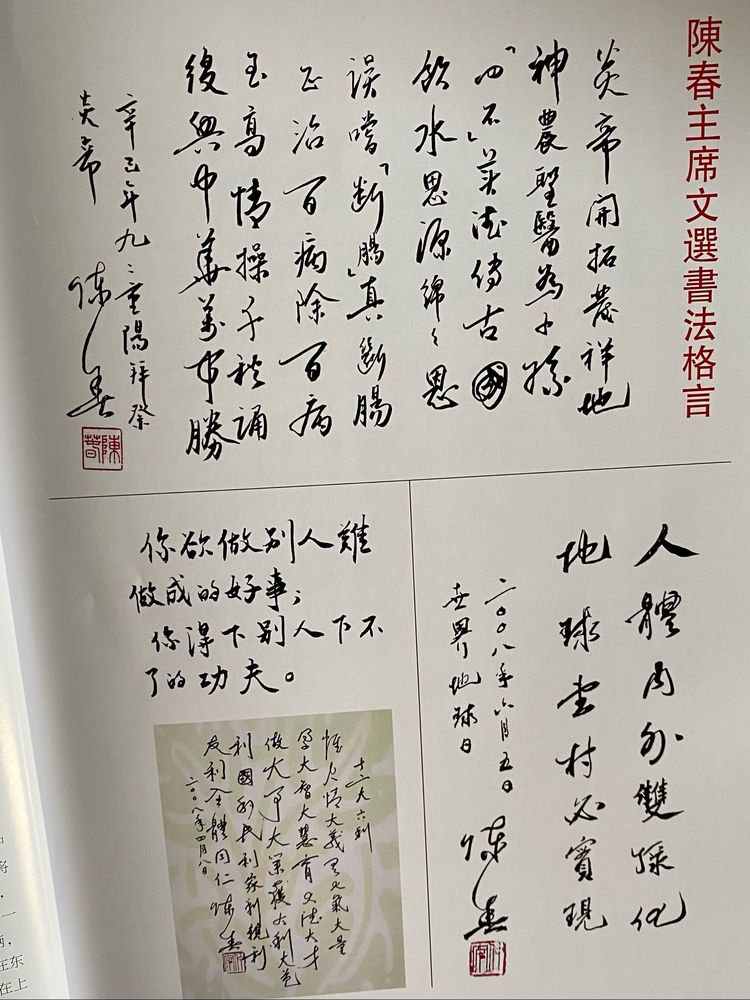 陳春主席文選書法格言
炎帝開拓發祥地
神農聖醫為小
「四不」英德傳古國
飲水思源綿々恩
誤嚐「斷腸」真斷腸
正治百病除百病
至高情操千秋誦
復興中華萬事勝
辛巳年九二重陽拜祭
炎帝
陳春
人體內外雙
地球村必實現
二〇〇八年六月五日
世界地球日
陳春
你欲做別人難
做成的好事；
你得下別人下不
了的功夫。
十二大六利
大智大慧育文德大才
做大事大業獲大利大
利國利民利家利親利
友利全體同仁
二〇〇八年四月八日
陳春